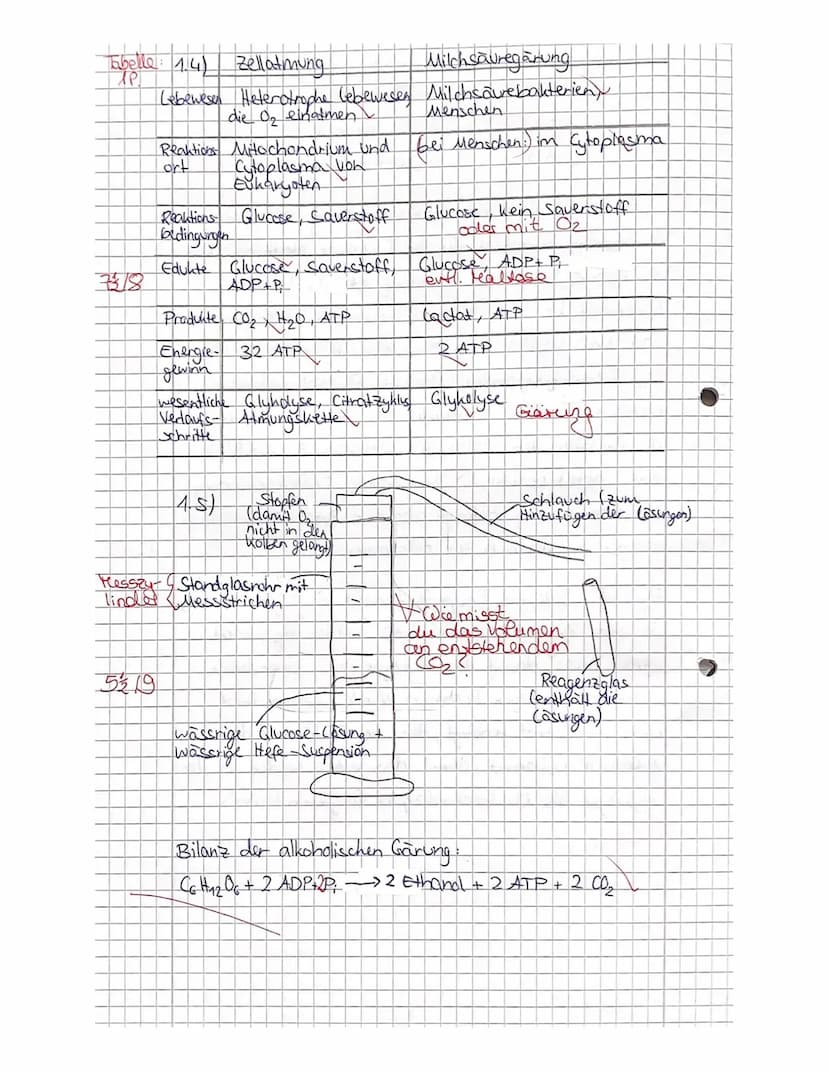 Tabelle: 1.4) Zellatmung Milchsäuregärung
1P.
Lebewesen Heterotrophe Lebewesen, Milchsäurebakterien,
die O2 einatmen Menschen
Reaktions- Mitochondrium und (bei Menschen:) im Cytoplasma
ort Cytoplasma von
Eukaryoten
Reaktions- Glucose, Sauerstoff Glucose, kein Sauerstoff
bedingungen oder mit O2
Edukte Glucose, Sauerstoff, Glucose, ADP + Pi
7½/8 ADP+Pi evtl. Maltose
Produkte CO2, H2O, ATP Lactat, ATP
Energie- 32 ATP 2 ATP
gewinn
wesentliche Glykolyse, Citratzyklus, Glykolyse
Verlaufs- Atmungskette Gärung
schritte
1.5) Stopfen
(damit O2
nicht in den
Kolben gelangt)
Schlauch (zum
Hinzufügen der Lösungen)
Messzy-
linder
Standglasrohr mit
Messstrichen
V Wie misst
du das Volumen
an entstehendem
CO2?
5½/9
Reagenzglas
(enthält die
Lösungen)
wässrige Glucose-Lösung +
wässrige Hefe-Suspension
Bilanz der alkoholischen Gärung:
C6H12O6 + 2 ADP+2Pi → 2 Ethanol + 2 ATP + 2 CO2